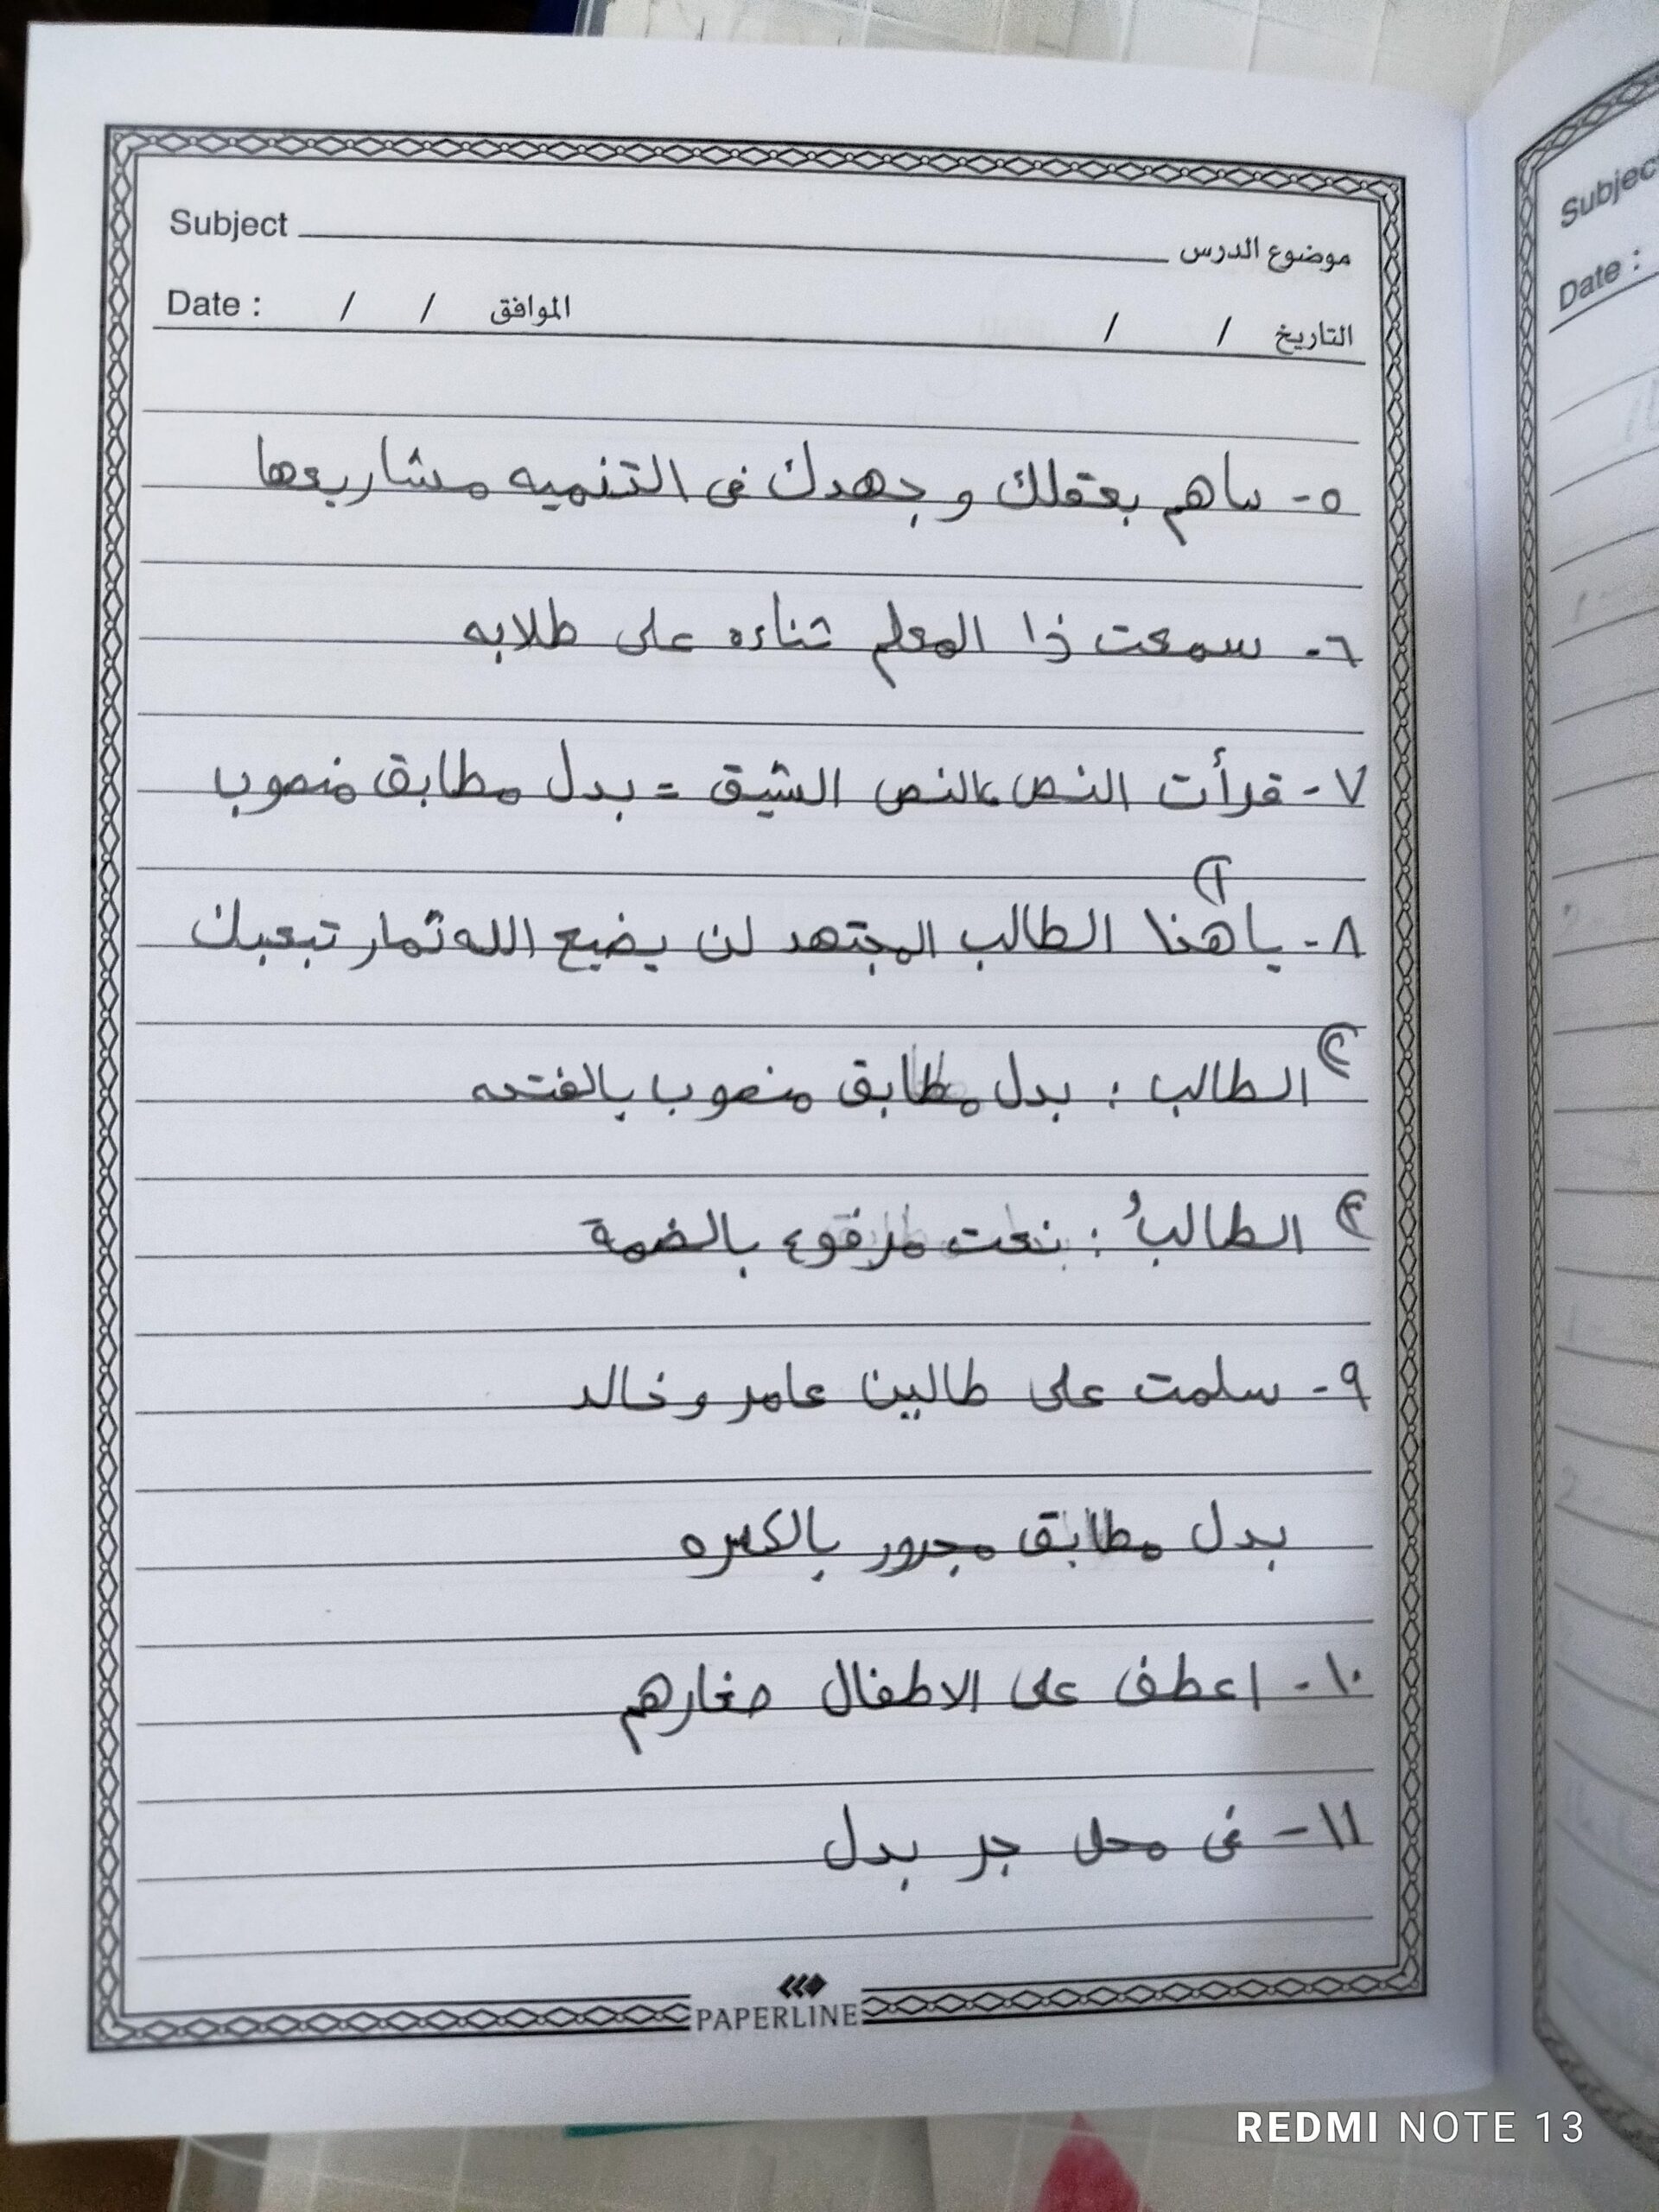 Subject موضوع الدرس
Date : / / الموافق / / التاريخ
٥- ساهم بعقلك وجهدك فى التنميه مشاريعها
٦- سمعت ذا المعلم ثناءه على طلابه
٧- قرأت النص النص الشيق = بدل مطابق منصوب
١
٨- يا هذا الطالب المجتهد لن يضيع الله ثمار تبعبك
٢ الطالب : بدل مطابق منصوب بالفتحه
٣ الطالبُ : نعت مرفوع بالضمة
٩- سلمت على طالبين عامر وخالد
بدل مطابق مجرور بالكسره
١٠- اعطف على الاطفال صغارهم
١١- فى محل جر بدل
PAPERLINE
Subject
Date :
REDMI NOTE 13